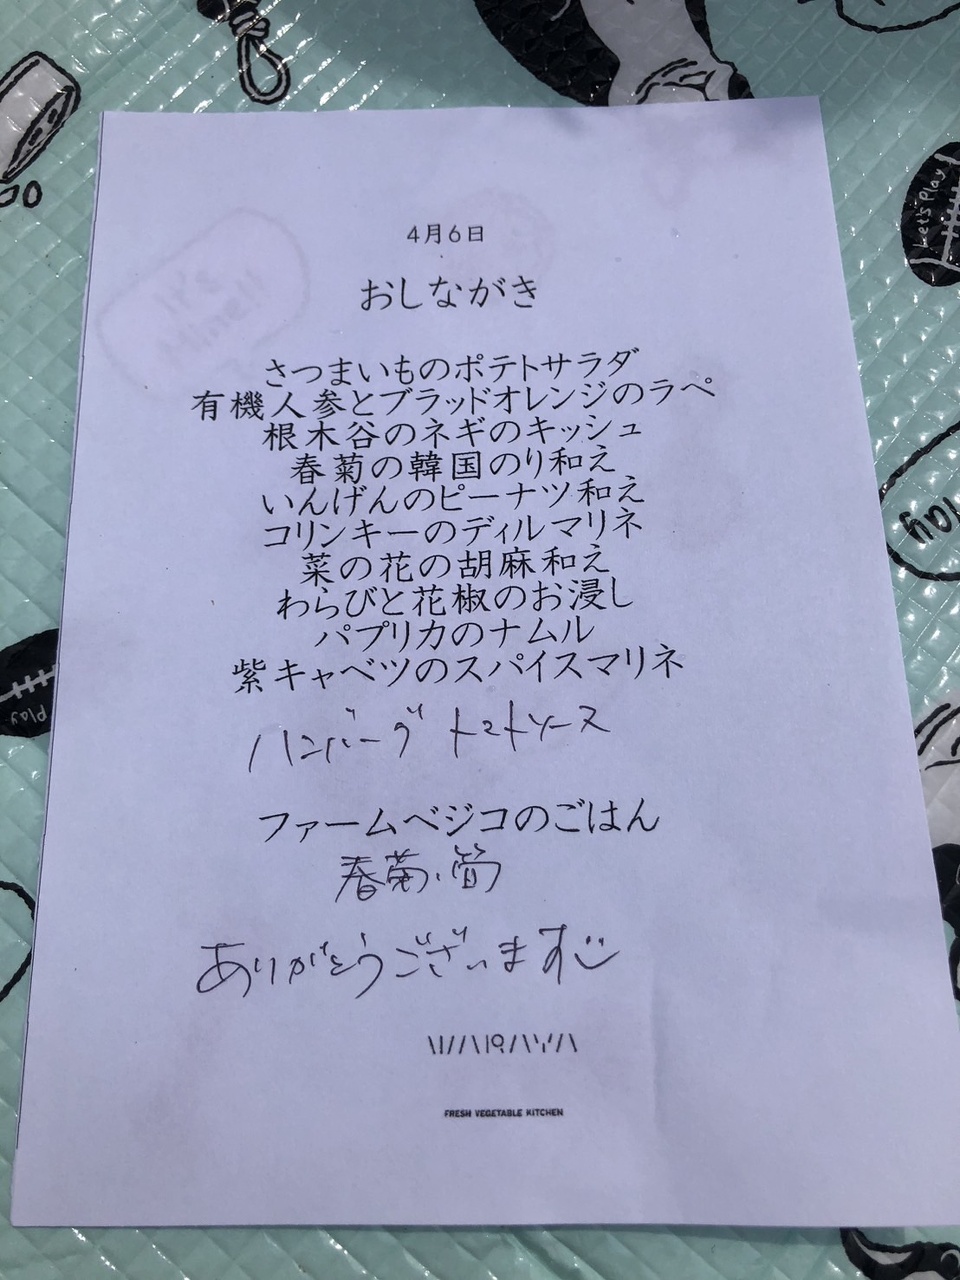 4月6日
おしながき
さつまいものポテトサラダ
有機人参とブラッドオレンジのラペ
根木谷のネギのキッシュ
春菊の韓国のり和え
いんげんのピーナツ和え
コリンキーのディルマリネ
菜の花の胡麻和え
わらびと花椒のお浸し
パプリカのナムル
紫キャベツのスパイスマリネ
ハンバーグ トマトソース
ファームベジコのごはん
春菊、筍
ありがとうございます
WARAYA
FRESH VEGETABLE KITCHEN
Let's Play
Play